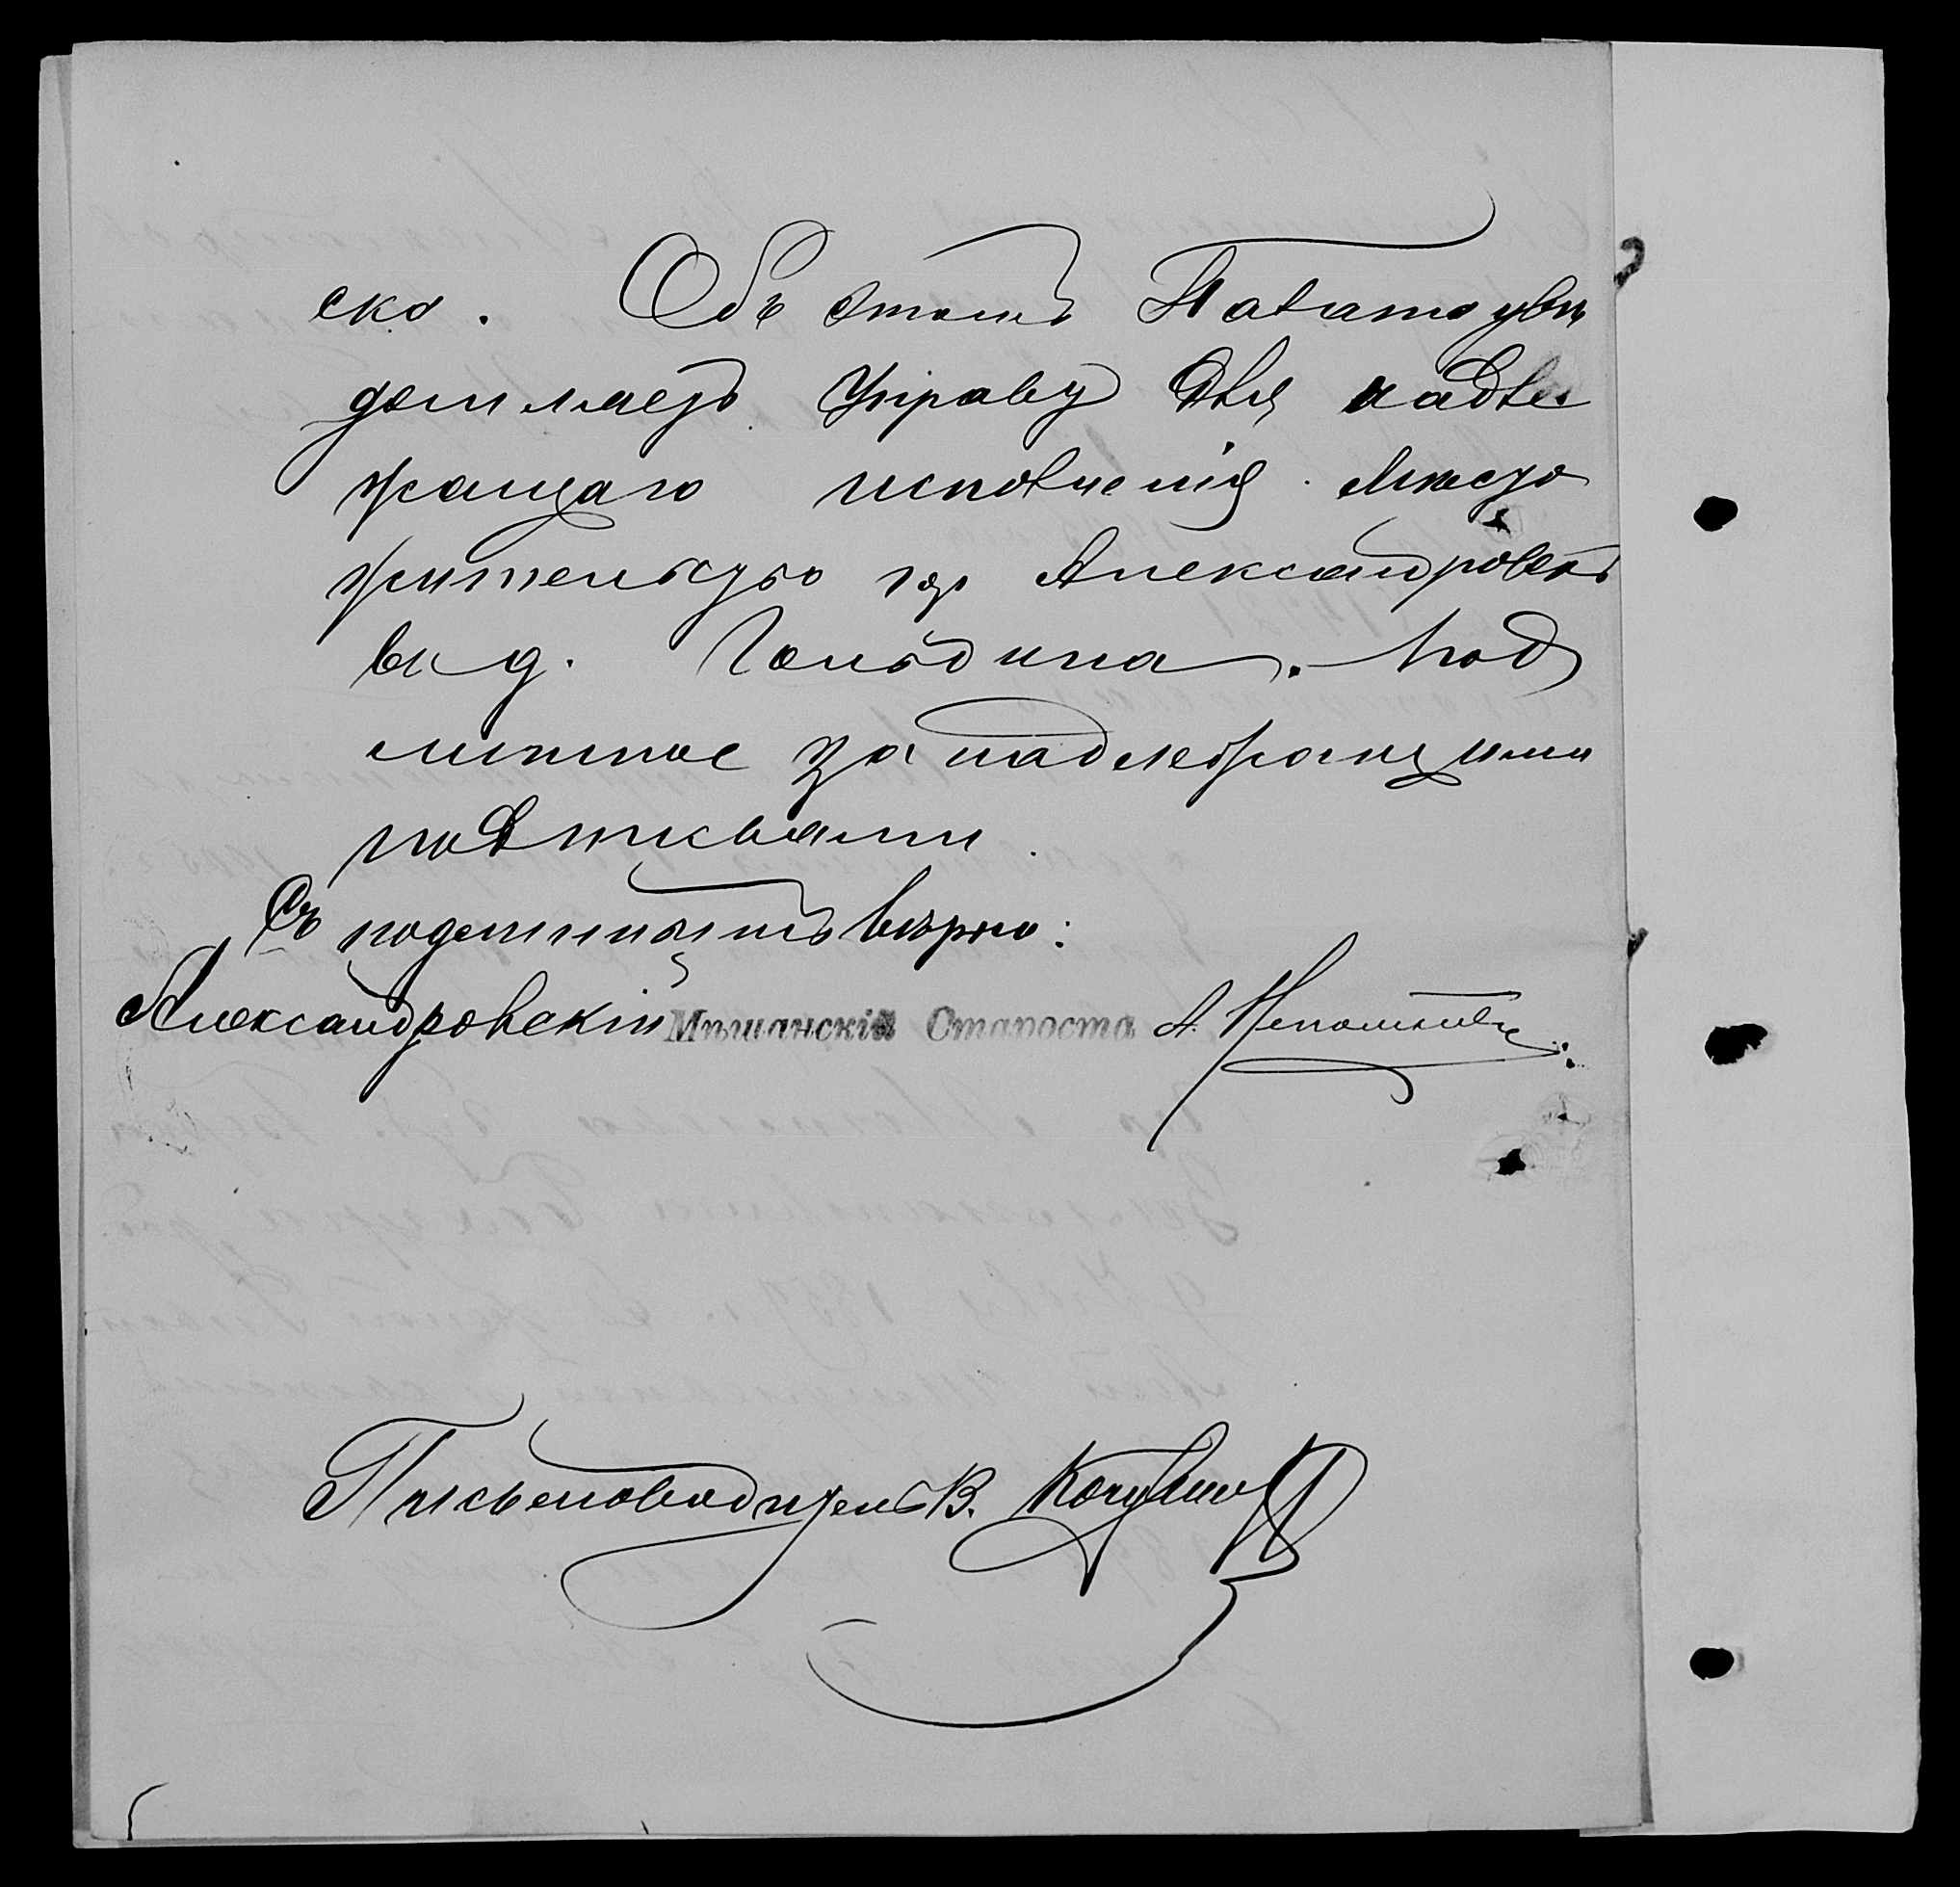 ско. Объ этомъ Палата увѣ
домляетъ Управу для надле
жащаго исполненія. Место
жительство гор Александровскъ
въ д. Гольдина. Под
линное за надлежащими
подписьями.
Съ подлиннымъ вѣрно:
Александровскій Мѣщанскій Староста А.
Письмоводитель В.